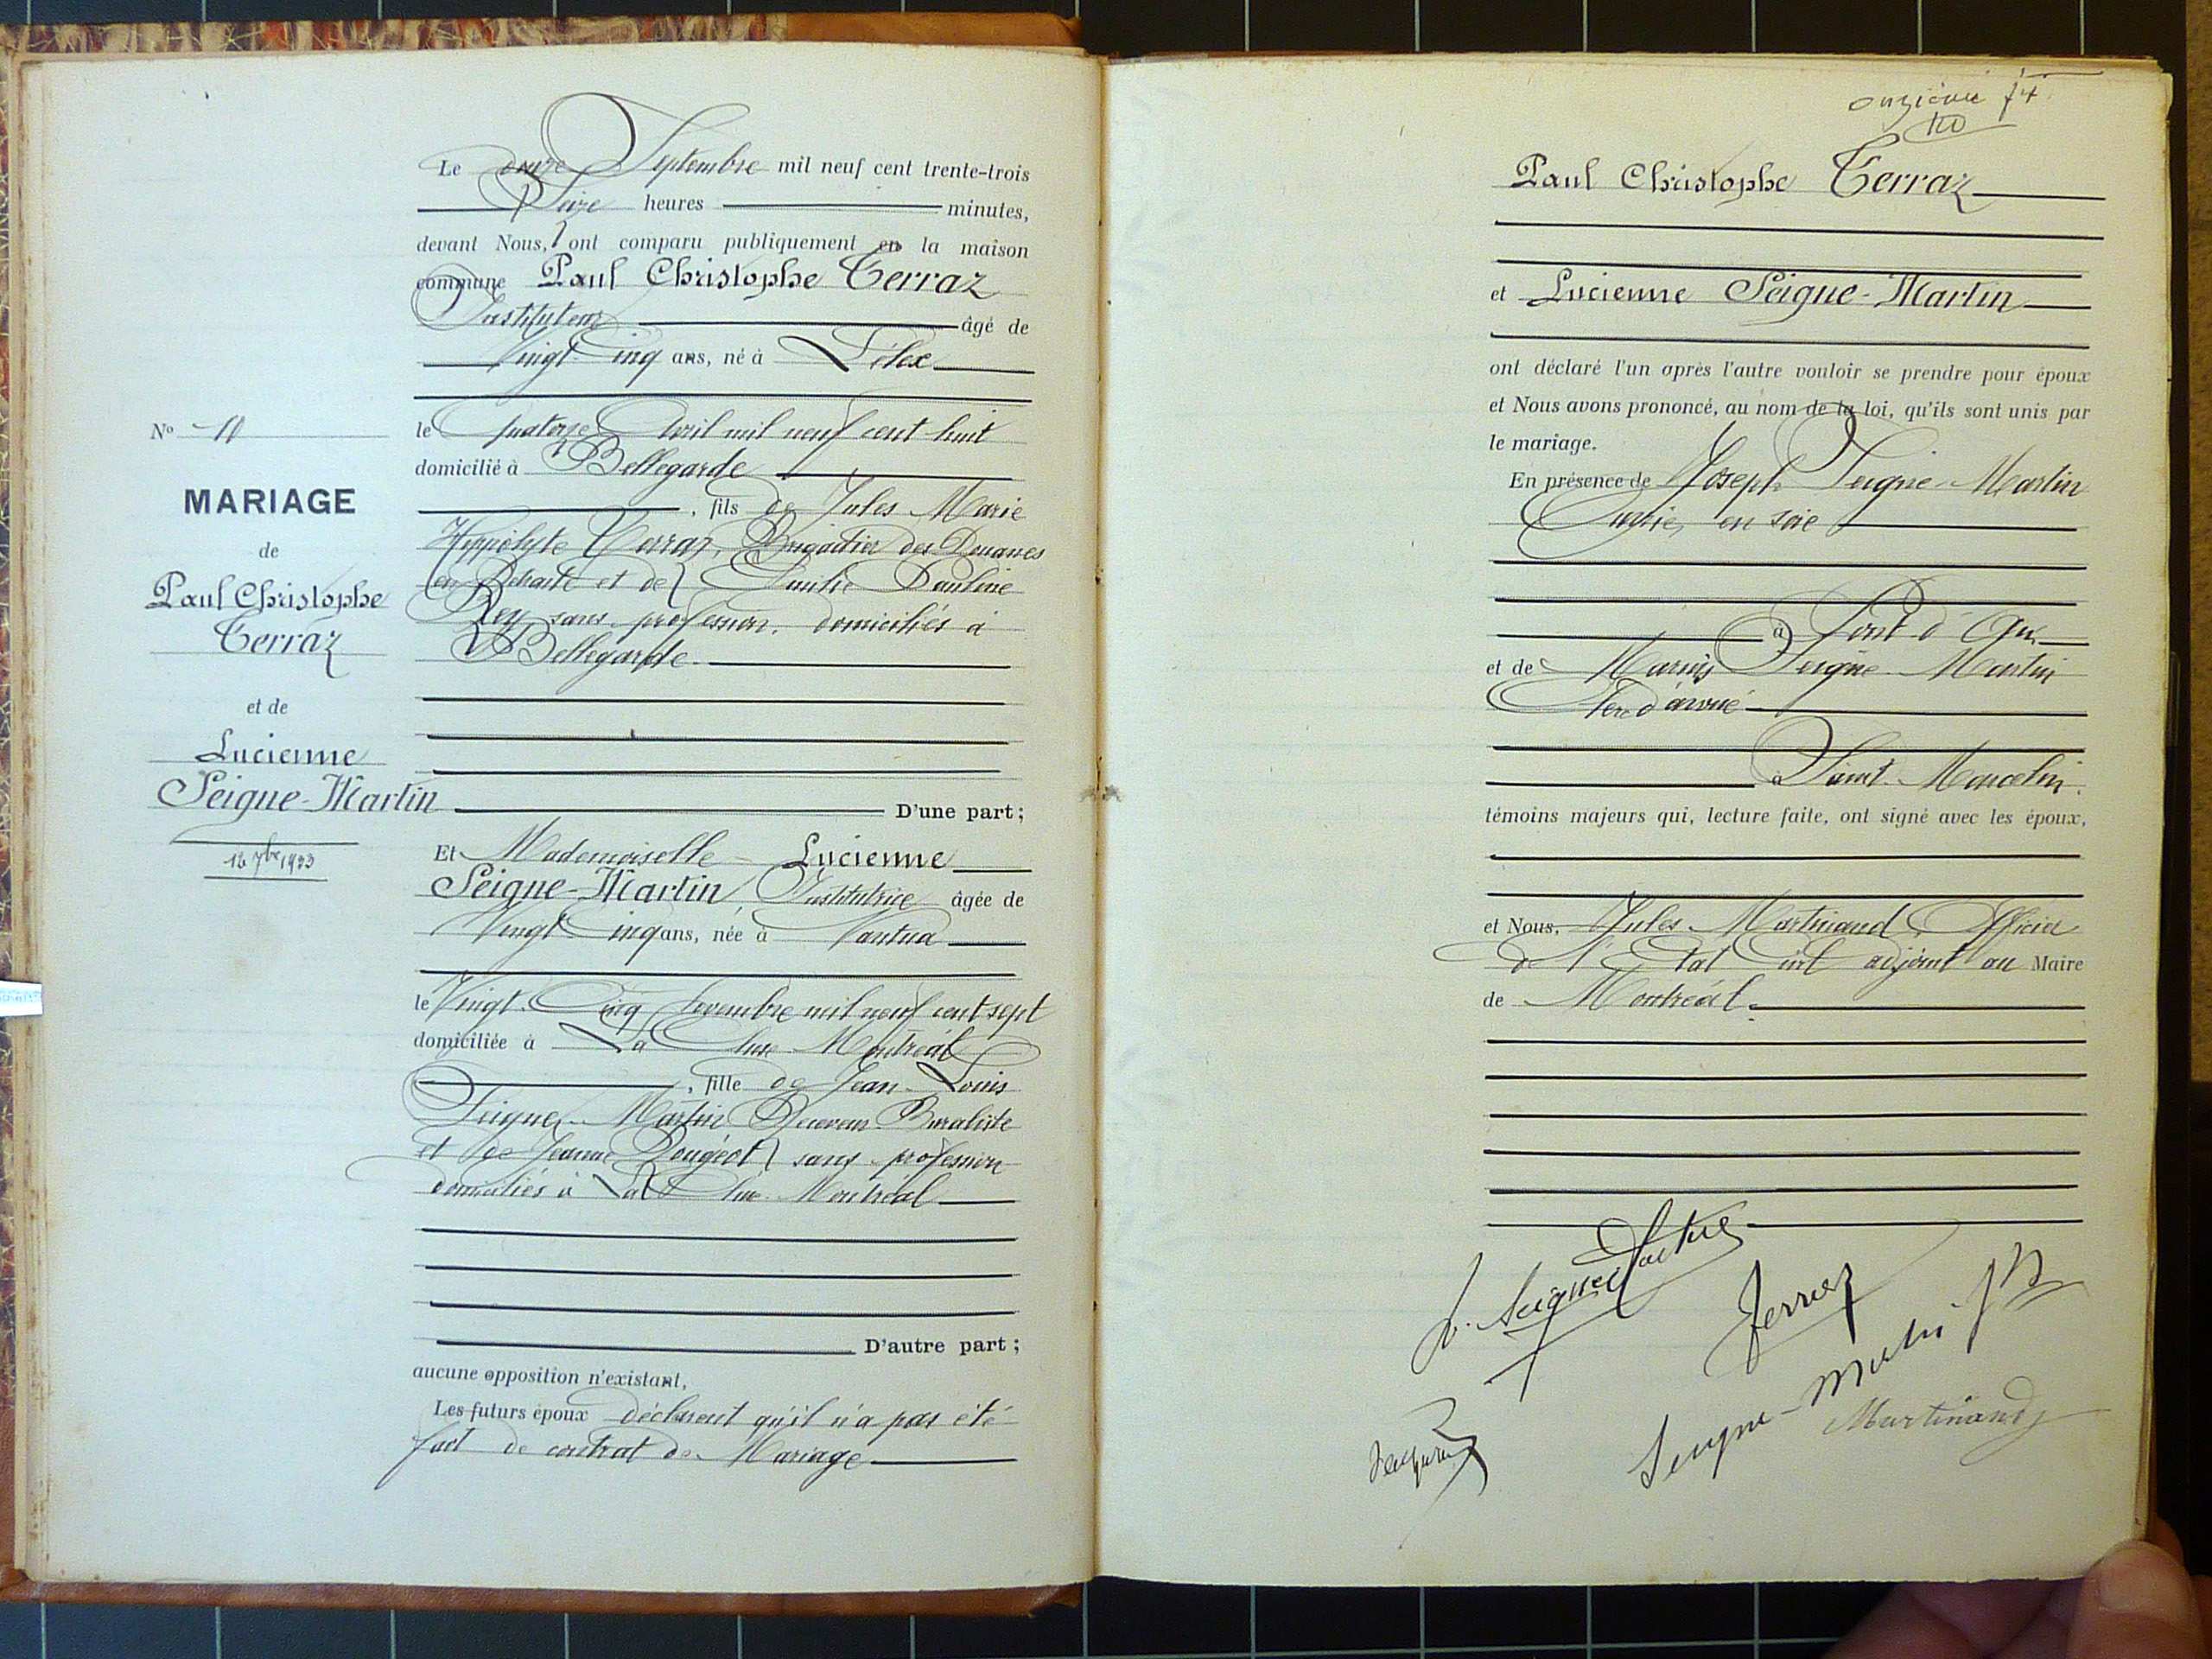 Le onze Septembre mil neuf cent trente-trois
Seize heures minutes,
devant Nous, ont comparu publiquement en la maison
commune Paul Christophe Terraz
Instituteur âgé de
Vingt Cinq ans, né à Lélex
le quatorze Avril mil neuf cent huit
domicilié à Bellegarde
, fils de Jules Marie
Hippolyte Terraz, Brigadier des Douanes
en Retraite et de Pauline
Rey, sans profession, domiciliés à
Bellegarde
D'une part;
Nº 11
MARIAGE
de
Paul Christophe
Terraz
et de
Lucienne
Seigne-Martin
12 7bre 1933
Et Mademoiselle Lucienne
Seigne-Martin, Institutrice âgée de
Vingt Cinq ans, née à Nantua
le Vingt-Cinq Novembre mil neuf cent sept
domiciliée à La Cluse Montréal
, fille de Jean-Louis
Seigne-Martin Receveur Buraliste
et de Jeanne Pougeot sans profession
domiciliés à La Cluse-Montréal
D'autre part;
aucune opposition n'existant,
Les futurs époux déclarent qu'il n'a pas été
fait de contrat de Mariage
onzième ft.
Paul Christophe Terraz
et Lucienne Seigne-Martin
ont déclaré l'un après l'autre vouloir se prendre pour époux
et Nous avons prononcé, au nom de la loi, qu'ils sont unis par
le mariage.
En présence de Joseph Seigne-Martin
en soie
à Pont d'Ain
et de Marius Seigne-Martin
Clerc d'avoué
à Saint-Marcelin.
témoins majeurs qui, lecture faite, ont signé avec les époux,
et Nous, Jules Martinand Officier
de l'Etat Civil adjoint au Maire
de Montréal.
L. Seigne Martin
Terraz
Seigne-Martin
Martinand